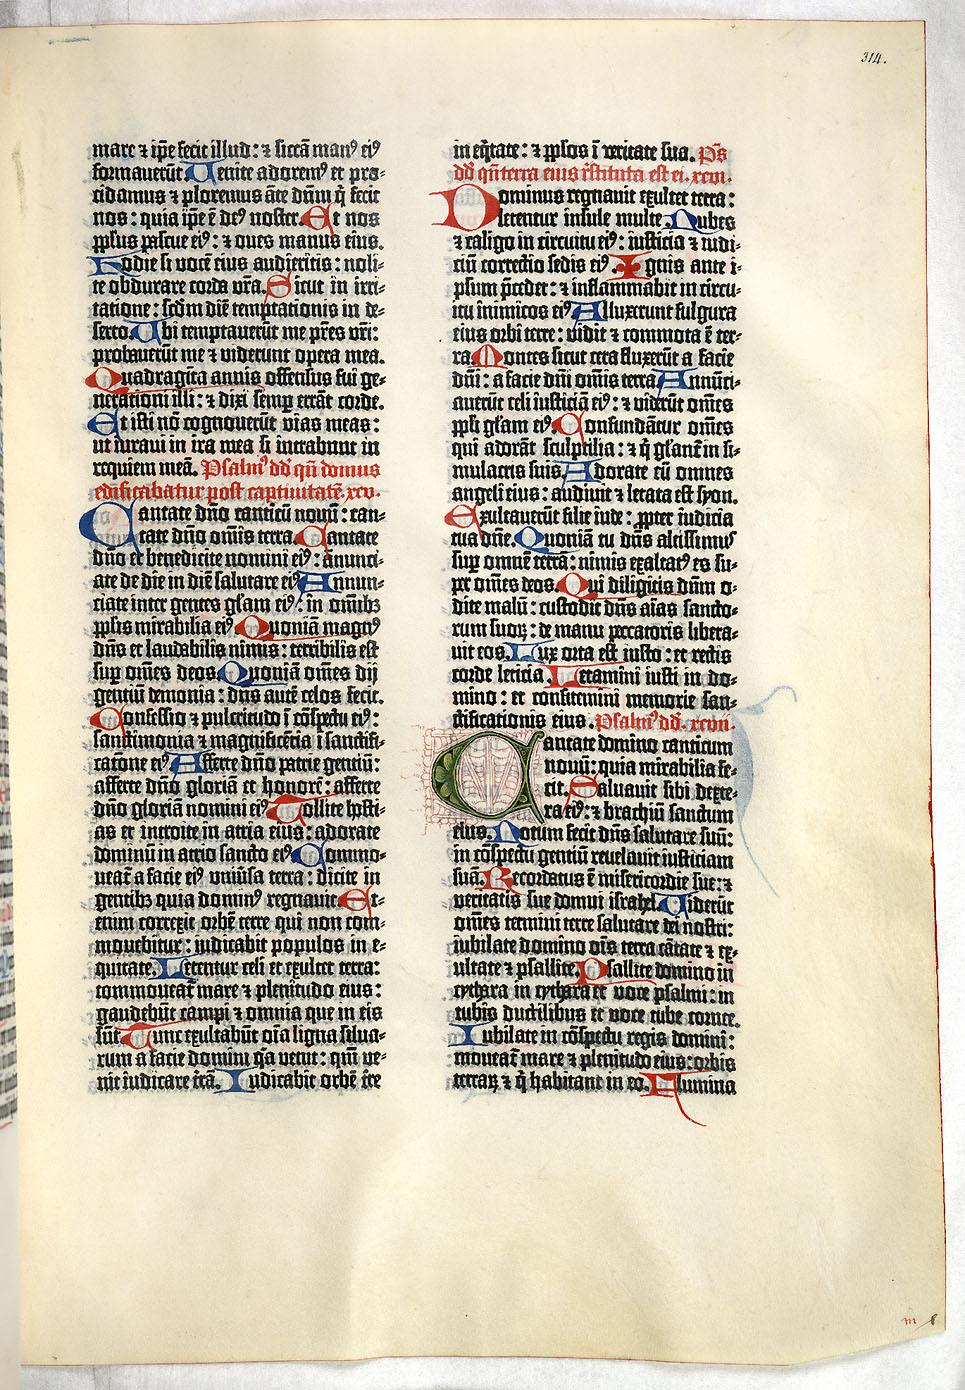 314.
mare ⁊ ip̄e fecit illud: ⁊ siccā manꝰ eiꝰ
formauerūt Uenite adoremꝰ et pro-
cidamus ⁊ ploremus āte dūm q̄ fecit
nos: quia ip̄e ē deꝰ noster. Et nos
pp̄lus pascue eiꝰ: ⁊ oues manus eius.
Hodie si vocē eius audieritis: noli-
te obdurare corda vr̄a. Sicut in irri-
tatione: scd̄m diē temptationis in de-
serto Ubi temptauerūt me pr̄es vr̄i:
probauerūt me ⁊ viderunt opera mea.
Quadragīta annis offensus fui ge-
nerationi illi: ⁊ dixi semp̄ errāt corde.
Et isti nō cognouerūt vias meas:
ut iuraui in ira mea si intrabunt in
requiem meā. Psalmꝰ dd̄ qn̄ domus
edificabatur post captiuitatē. xcv.
Cantate dn̄o canticū nouū: can-
tate dn̄o om̄is terra. Cantate
dn̄o et benedicite nomini eiꝰ: Annunci-
ate de die in diē salutare eiꝰ Annun-
ciate inter gentes gl̄am eiꝰ: in om̄ibꝫ
pp̄lis mirabilia eiꝰ Quoniā magnꝰ
dn̄s et laudabilis nimis: terribilis est
sup̄ om̄es deos Quoniā om̄es dij
gentiū demonia: dn̄s autē celos fecit.
Confessio ⁊ pulcritudo ī cōspectu eiꝰ:
sanctimonia ⁊ magnificēcia ī sanctifi-
catōne eiꝰ Afferte dn̄o patrie gentiū:
afferte dn̄o gloriā et honorē: afferte
dn̄o gloriā nomini eiꝰ Tollite hosti-
as et introite in atria eius: adorate
dominū in atrio sancto eiꝰ Commo-
ueat̄ a facie eiꝰ vniūsa terra: dicite in
gentibꝫ quia dominꝰ regnauit. Et-
enim correxit orbē terre qui non com-
mouebitur: iudicabit populos in e-
quitate. Letentur celi et exultet terra:
commoueat̄ mare ⁊ plenitudo eius:
gaudebūt campi ⁊ omnia que in eis
sūt. Tunc exultabūt oīa ligna silua-
rum a facie domini q̄a venit: qm̄ ve-
nit iudicare trā. Iudicabit orbē tre
in eq̄tate: ⁊ pp̄los ī veritate sua. Pš
dd̄ qn̄ terra eius r̄stituta est ei. xcvi.
Dominus regnauit exultet terra:
letentur insule multe. Nubes
⁊ caligo in circuitu eiꝰ: iusticia ⁊ iudi-
ciū correctio sedis eiꝰ. Ignis ante i-
psum p̄cedet: ⁊ inflammabit in circu-
itu inimicos eiꝰ Alluxerunt fulgura
eius orbi terre: vidit ⁊ commota ē ter-
ra. Montes sicut cera fluxerūt a facie
dn̄i: a facie dn̄i om̄is terra Annūci-
auerūt celi iusticiā eiꝰ: ⁊ viderūt om̄es
pp̄li gl̄am eiꝰ. Confundātur om̄es
qui adorāt sculptilia: ⁊ q̄ gl̄ant̄ in si-
mulacris suis Adorate eū omnes
angeli eius: audiuit ⁊ letata est syon.
Exultauerūt filie iude: p̄pter iudicia
tua dn̄e. Quoniā tu dn̄s altissimus
sup̄ omnē terrā: nimis exaltatꝰ es su-
per om̄es deos. Qui diligitis dn̄m o-
dite malū: custodit dn̄s aīas sancto-
rum suoꝝ: de manu peccatoris libera-
uit eos. Lux orta est iusto: et rectis
corde leticia. Letamini iusti in do-
mino: et confitemini memorie san-
ctificationis eius. Psalmꝰ dd̄. xcvii.
Cantate domino canticum
nouū: quia mirabilia fe-
cit. Saluauit sibi dexte-
ra eiꝰ: ⁊ brachiū sanctum
eius. Notum fecit dn̄s salutare suū:
in cōspectu gentiū reuelauit iusticiam
suā. Recordatus ē misericordie sue: ⁊
veritatis sue domui israhel. Uiderūt
om̄es termini terre salutare dei nostri:
iubilate domino oīs terra cātate ⁊ ex-
ultate ⁊ psallite. Psallite domino in
cythara in cythara et voce psalmi: in
tubis ductilibus et voce tube cornee.
Iubilate in cōspectu regis domini:
moueat̄ mare ⁊ plenitudo eius: orbis
terraꝝ ⁊ q̄ habitant in eo. Flumina